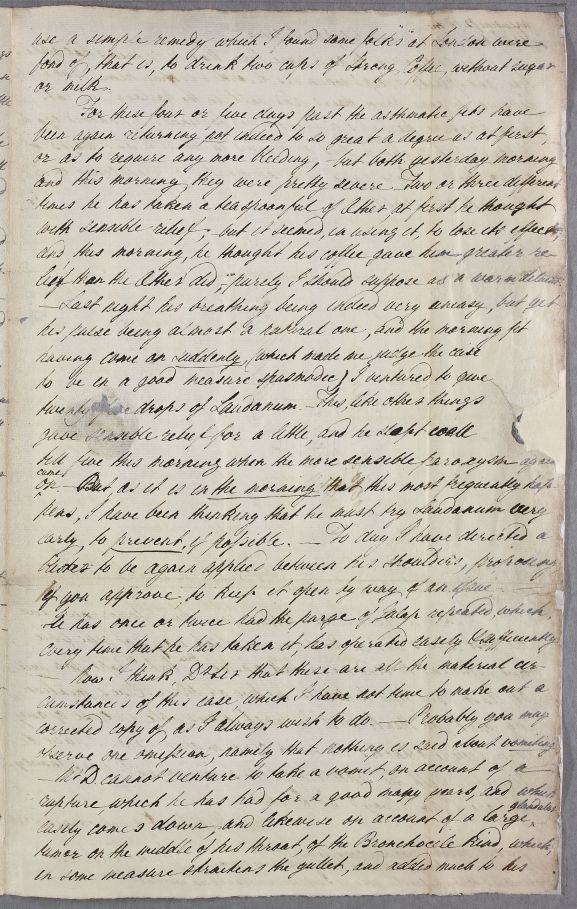 use a simple remedy which I found some folks at London were
fond of, that is, to drink two cups of strong Coffee, without sugar
or milk.
For these four or five days past the asthmatic fits have
been again returning not indeed to so great a degree as at first,
or as to require any more bleeding, but both yesterday morning
and this morning they were pretty severe. Two or three different
times he has taken a teaspoonful of Ether at first he thought
with sensible relief, but it seemed, in using it, to lose its effects,
and this morning, he thought his coffee gave him greater re
lief than the Ether did, purely I should suppose as a warm diluent
— Last night his breathing being indeed very uneasy, but yet
his pulse being almost a natural one, and the morning fit
having come on suddenly, (which made me judge the case
to be in a good measure spasmodic) I ventured to give
twenty drops of Laudanum — This, like other things
gave sensible relief for a little, and he slept well
till five this morning when the more sensible Paroxysm again
came
on. — But as it is in the morning that this most frequently hap
pens, I have been thinking that he must try Laudanum very
early, to prevent, if possible. — To day I have directed a
blister to be again applied between his shoulders, proposing
if you approve, to keep it open by way of an issue —
He has once or twice had the purge of Jalap repeated, which,
every time that he has taken it has operated easily & sufficiently
— Now I think, Dr Sir that these are all the material cir
cumstances of this case, which I have not time to make out a
corrected copy of, as I always wish to do. — Probably you may
observe one omission, namely that nothing is said about vomiting
— Mr D cannot venture to take a vomit, on account of a
rupture which he has had for a good many years, and which
easily comes down, and likewise on account of a large
glandular
tumor on the middle of his throat, of the Bronchocele kind, which,
in some measure straitens the gullet, and added much to his